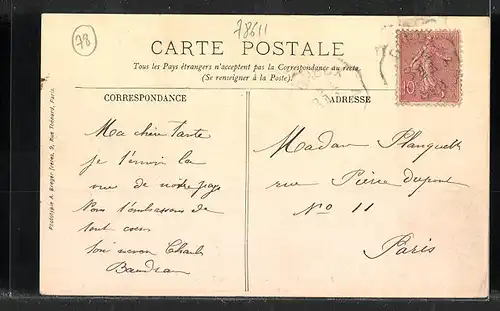 78
78611
CARTE POSTALE
Tous les Pays étrangers n'acceptent pas la Correspondance au recto
(Se renseigner à la Poste).
CORRESPONDANCE
ADRESSE
Ma chère Tante
je t'envoie la
vue de notre pays
Nous t'embrassons de
tout cœur
Ton neveu Charles
10
Madam Planquett
rue Pierre dupont
No 11
Paris
Phototypie A. Breger frères, 9, Rue Thénard, Paris.